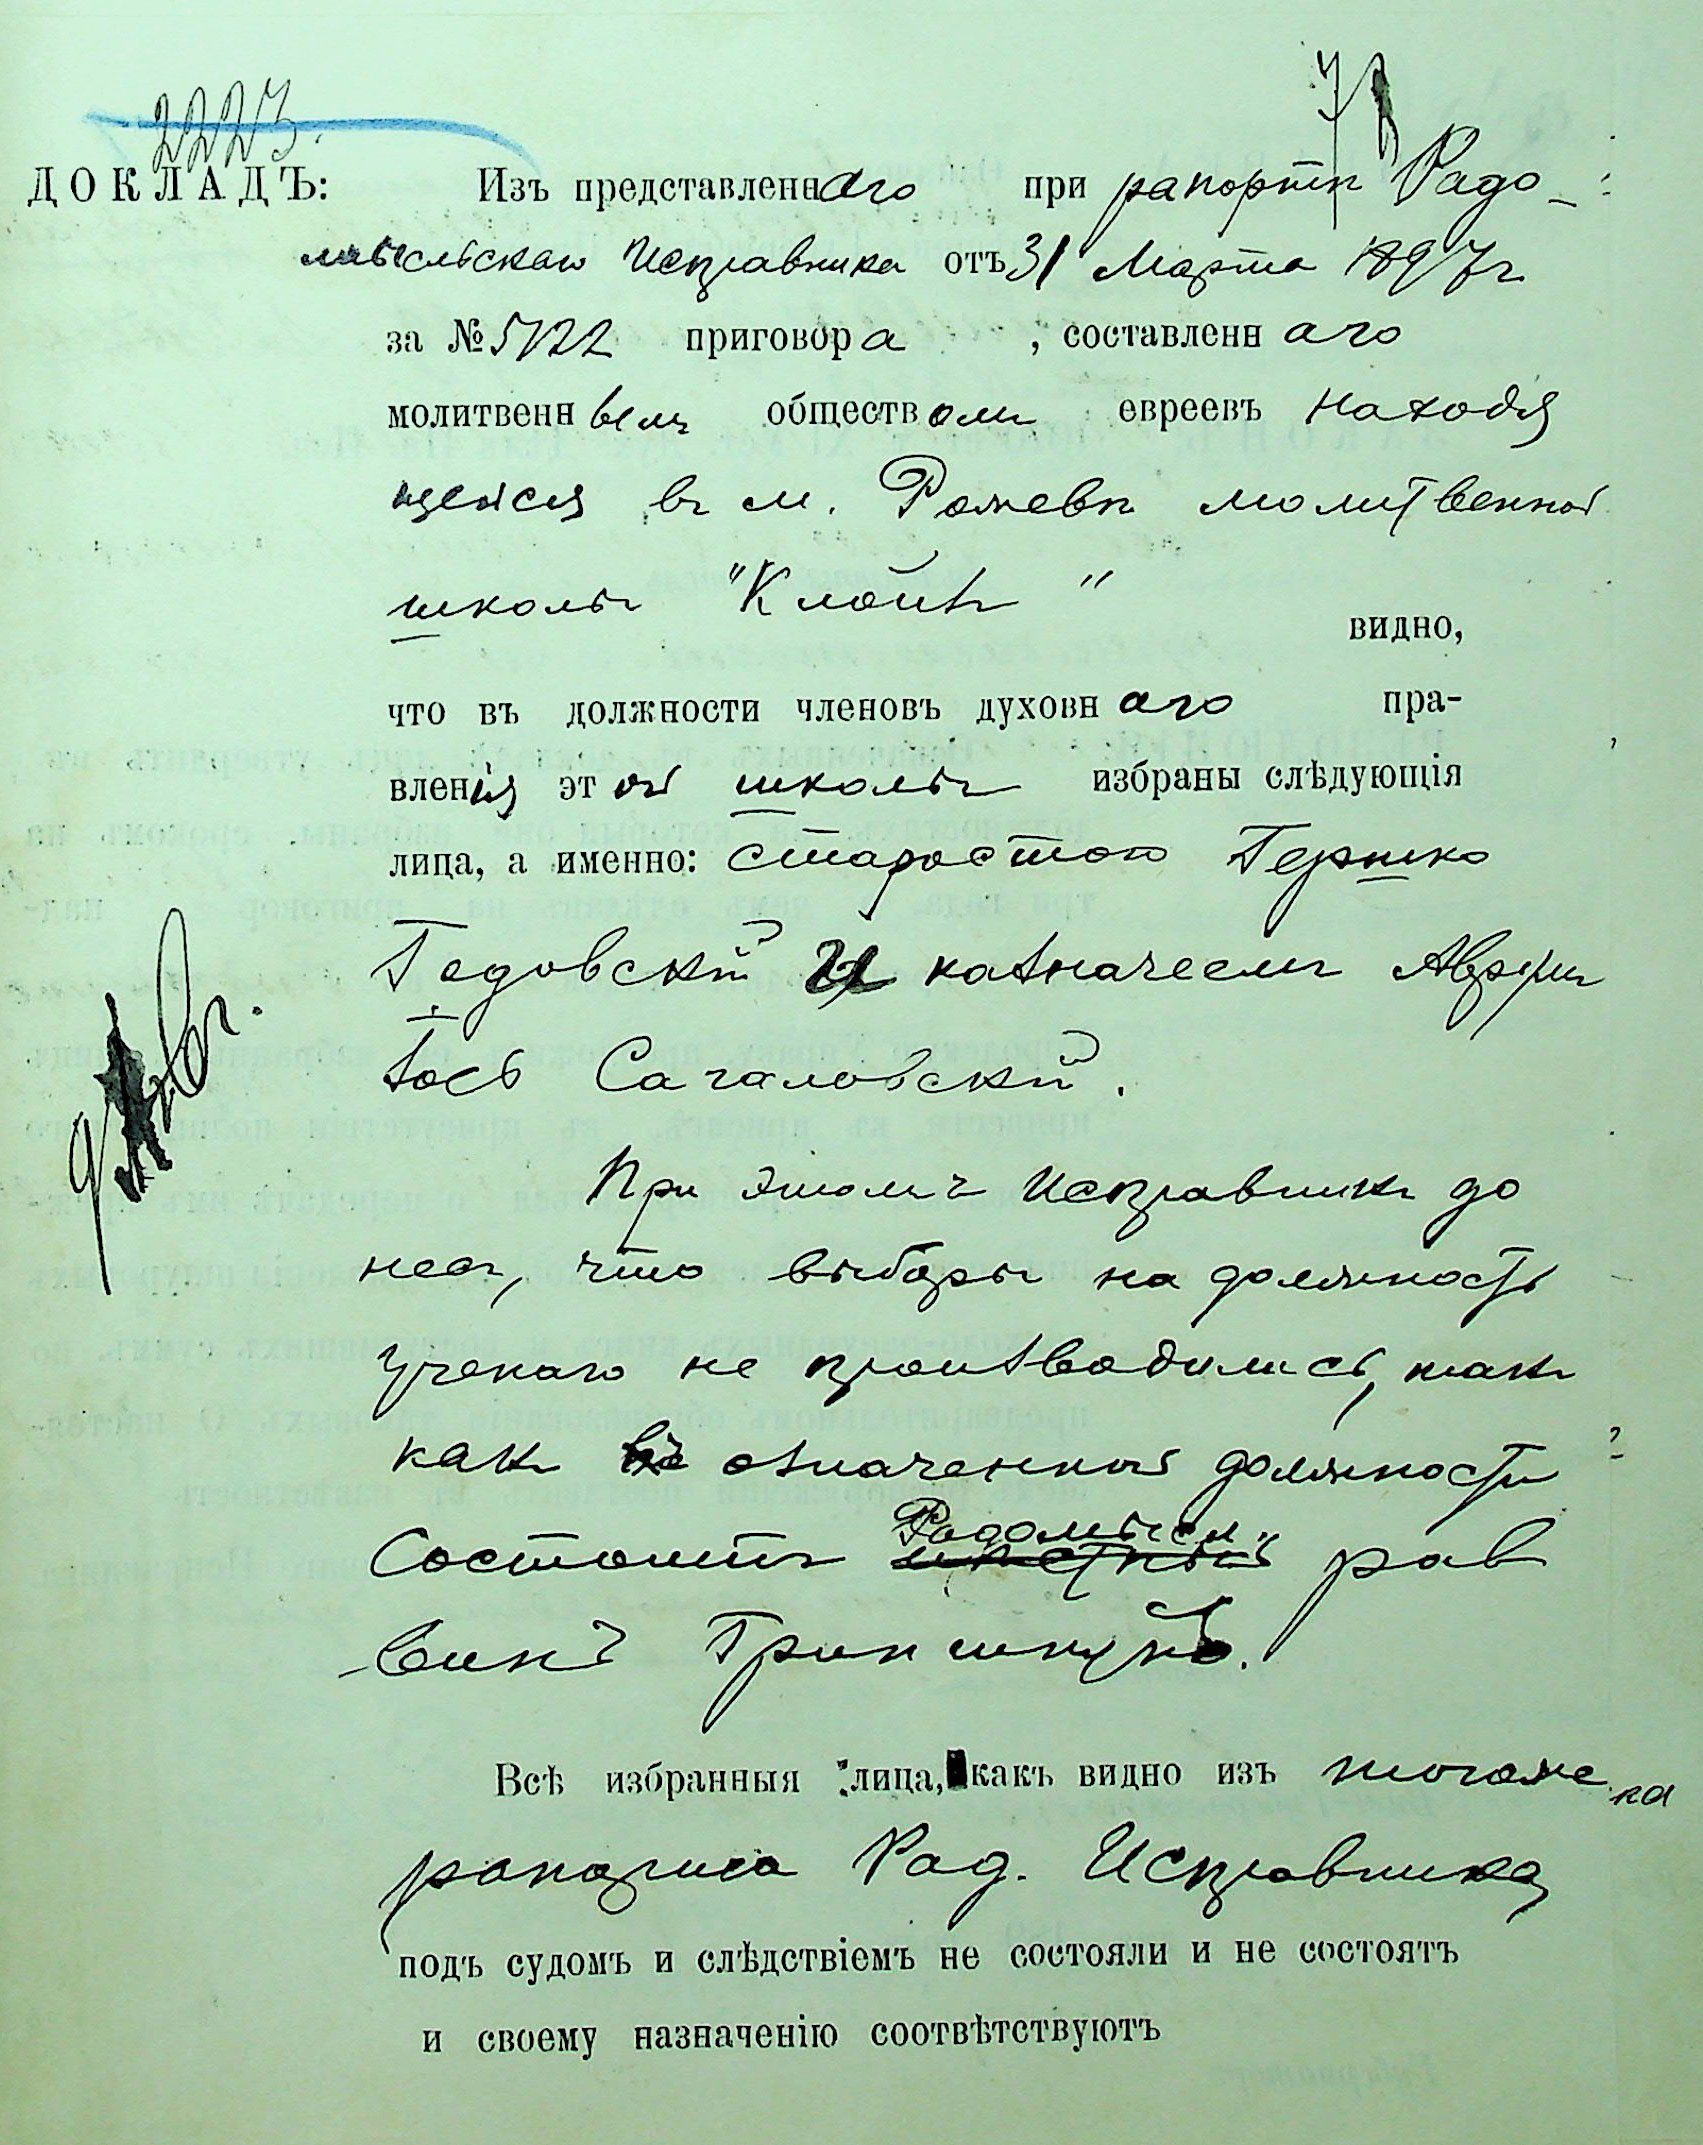 2223.
ДОКЛАДЪ: Изъ представленнаго при рапортѣ Радо-
мысльскаго Исправника отъ 31 Марта 1897 г
за № 5122 приговора, составленнаго
молитвеннымъ обществомъ евреевъ находя
щейся въ м. Рожевѣ молитвенной
школы "Клойзъ"
видно,
что въ должности членовъ духовнаго пра-
вленія этой школы избраны слѣдующія
лица, а именно: старостою Гершко
Гедовскій и казначеемъ Аврум
Іось Сагаловскій.
При этомъ Исправникъ до
несъ, что выборы на должность
ученаго не производились, такъ
какъ въ означенной должности
Радомысл.
состоитъ мѣстный рав
винъ Гриншпунъ.
Всѣ избранныя лица, какъ видно изъ того же
рапорта Рад. Исправника
подъ судомъ и слѣдствіемъ не состояли и не состоятъ
и своему назначенію соотвѣтствуютъ